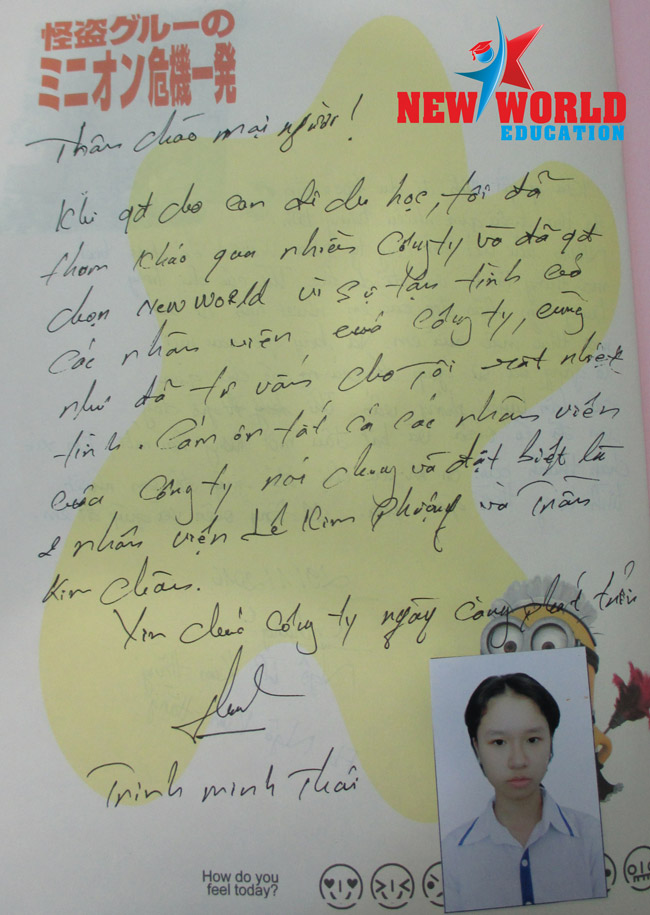 怪盗グルーの
ミニオン危機一発
NEW WORLD
EDUCATION
Thân chào mọi người!
Khi qđ cho con đi du học, tôi đã
tham khảo qua nhiều công ty và đã qđ
chọn NEW WORLD vì sự tận tình của
các nhân viên của công ty, cũng
như đã tư vấn cho tôi rất nhiệt
tình. Cám ơn tất cả các nhân viên
của công ty nói chung và đặt biệt là
2 nhân viên Lê Kim Phượng và Trần
Kim Châu.
Xin chúc công ty ngày càng phát triển
Trịnh minh Thái
How do you
feel today?